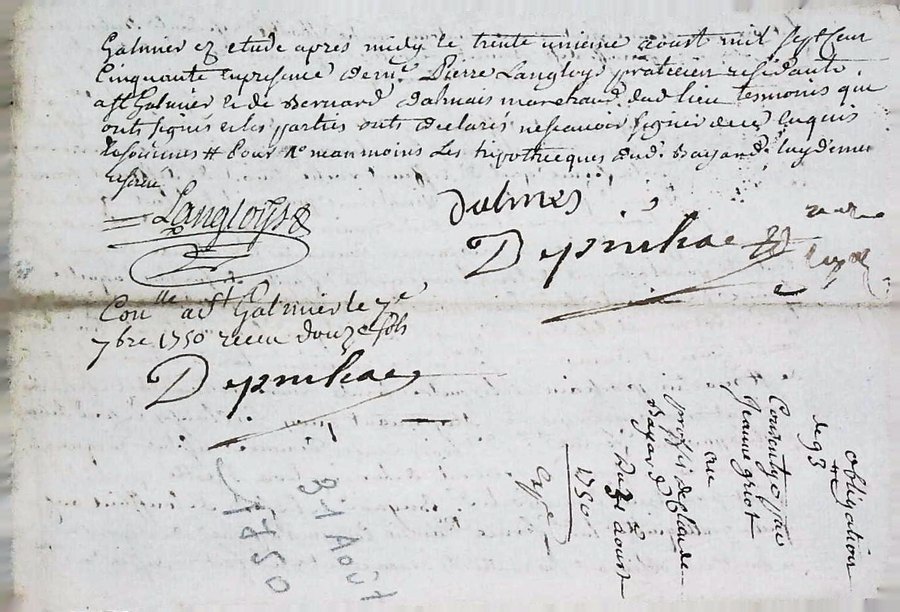 Galmier ez etude apres midy le trente unieme aoust mil sept cent
Cinquante en presence de me Pierre Langloys praticien residants
a St Galmier et de Bernard Dalmais marchand dud lieu tesmoins qui
onts signés et les parties onts declarés ne scavoir signer de ce enquis
et sommes # pour neanmoins les hipothecques dud. Bayard
Langloys
Dalmes
Depinhac
Conlle a St Galmier le 7e
7bre 1750 receu douze sols
Depinhac
obligation
de 93tt
Consentye par
Jeanne griot
au
proffit de Claude
Bayard
Du 31 aoust
1750
31 Août
1750